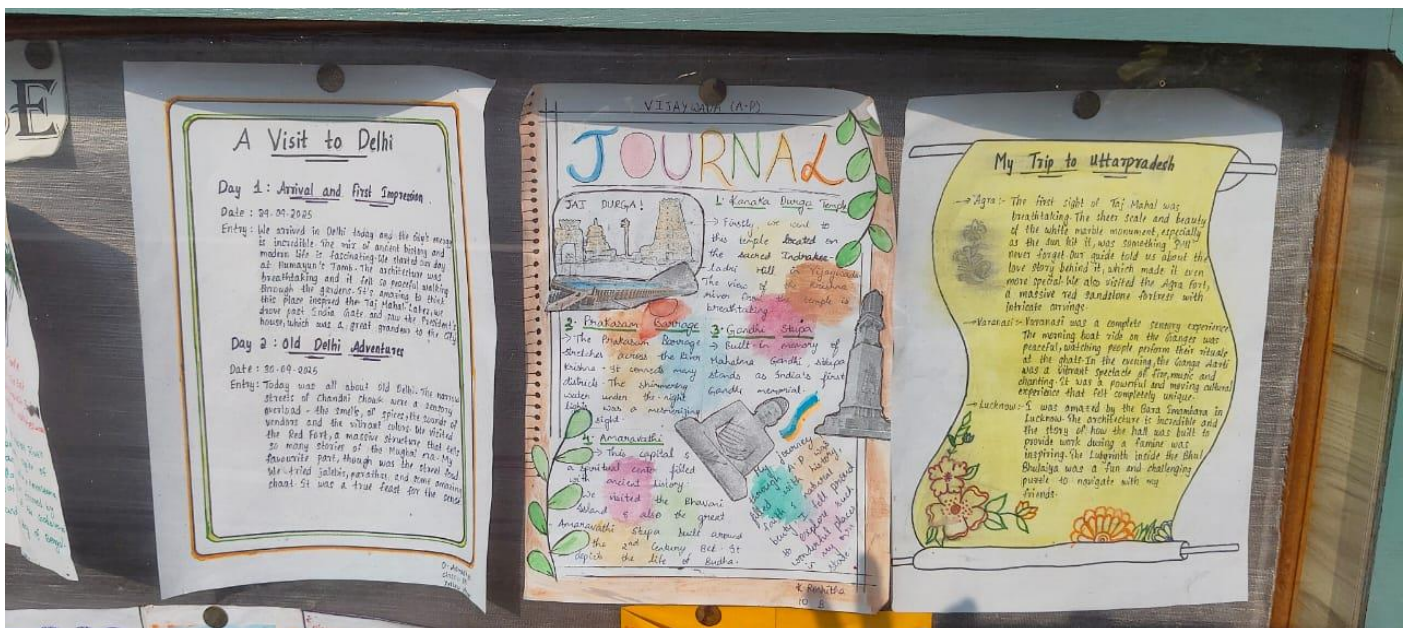 E
A Visit to Delhi
Day 1 : Arrival and First Impression
Date : 29.09.2025
Entry: We arrived in Delhi today and the city's
is incredible. The mix of ancient history and
modern life is fascinating. We started our day
at Humayun's Tomb. The architecture was
breathtaking and it felt so peaceful walking
through the gardens. It's amazing to think
this place inspired the Taj Mahal. Later, we
drove past India Gate and saw the President's
house, which was a great grandeur to city
Day 2 : Old Delhi Adventures
Date : 30.09.2025
Entry: Today was all about Old Delhi. The narrow
streets of Chandni Chowk were a sensory
overload - the smells of spices, the sounds of
vendors and the vibrant colors. We visited
the Red Fort, a massive structure that sets
so many stories of the Mughal era. My
favourite part, though was the street food.
We tried jalebis, parathas, and some amazing
chaat. It was a true feast for the sense
VIJAYWADA (A.P)
JOURNAL
JAI DURGA!
1. Kanaka Durga Temple
→ Firstly, we went to
this temple located on
the sacred Indrakee-
ladri Hill in Vijaywada
The view of the Krishna
river from the temple is
breathtaking.
2. Prakasam Barrage
→ The Prakasam Barrage
stretches across the River
Krishna. It connects many
districts. The shimmering
water under the night
lights was a mesmerizing
sight.
3. Gandhi Stupa
→ Built in memory of
Mahatma Gandhi, stupa
stands as India's first
Gandhi memorial.
4. Amaravathi
→ This capital is
a spiritual center filled
with ancient history.
We visited the Bhavani
Island & also the great
Amaravathi Stupa built around
the 2nd Century BCE. It
depict the life of Budha.
My journey
through A.P was
filled with history,
faith & natural
beuty. I felt proud
to explore such
wonderful places
in my own
state
K Roshitha
10 B
My Trip to Uttarpradesh
→ Agra:- The first sight of Taj Mahal was
breathtaking. The sheer scale and beauty
of the white marble monument, especially
as the sun hit it, was something I'll
never forget. Our guide told us about the
love story behind it, which made it even
more special. We also visited the Agra Fort,
a massive red sandstone fortress with
intricate carvings.
→ Varanasi:- Varanasi was a complete sensory experience
The morning boat ride on the Ganges was
peaceful, watching people perform their rituals
at the ghats. In the evening, the Ganga Aarti
was a vibrant spectacle of fire, music and
chanting. It was a powerful and moving cultural
experience that felt completely unique.
→ Lucknow:- I was amazed by the Bara Imambara in
Lucknow. The architecture is incredible and
the story of how the hall was built to
provide work during a famine was
inspiring. The Labyrinth inside the Bhul
Bhulaiya was a fun and challenging
puzzle to navigate with my
friends.